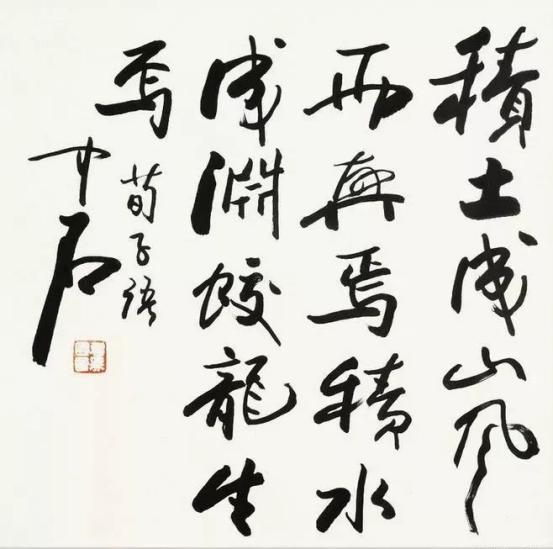 積土成山風
雨興焉積水
成淵蛟龍生
焉
荀子語
中石